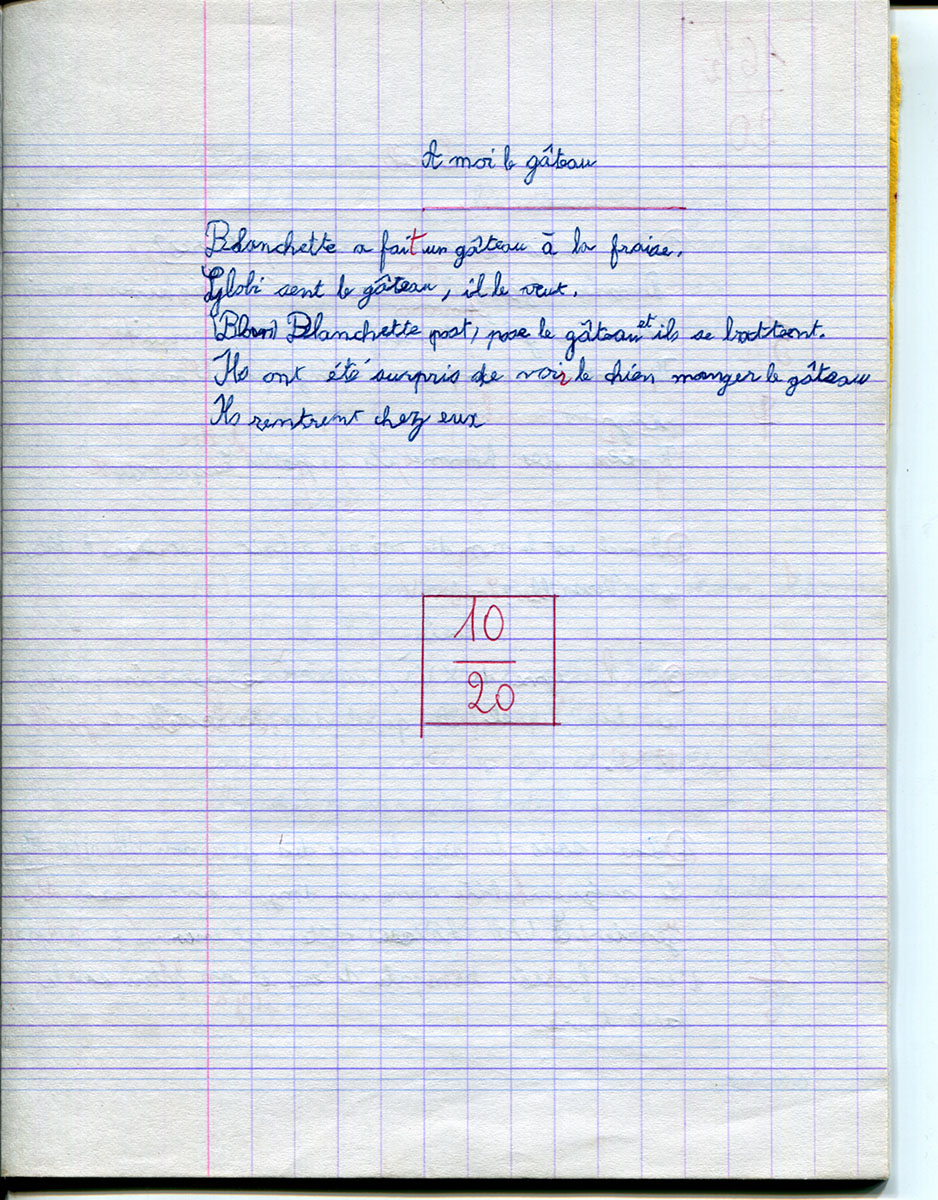 A moi le gâteau
Blanchette a fait un gâteau à la fraise.
Globi sent le gâteau, il le veut.
(Blan) Blanchette post, pose le gâteau et ils se battent.
Ils ont été surpris de voir le chien manger le gâteau
Ils rentrent chez eux
10
20